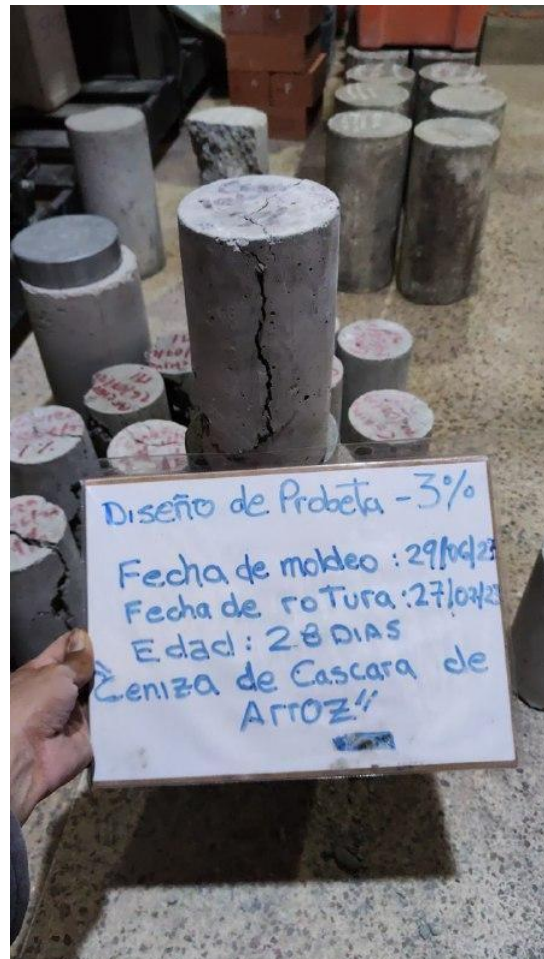 Diseño de Probeta - 3%
Fecha de moldeo : 29/06/2
Fecha de roTura : 27/07/2
Edad : 28 DIAS
"Ceniza de Cascara de
Arroz"